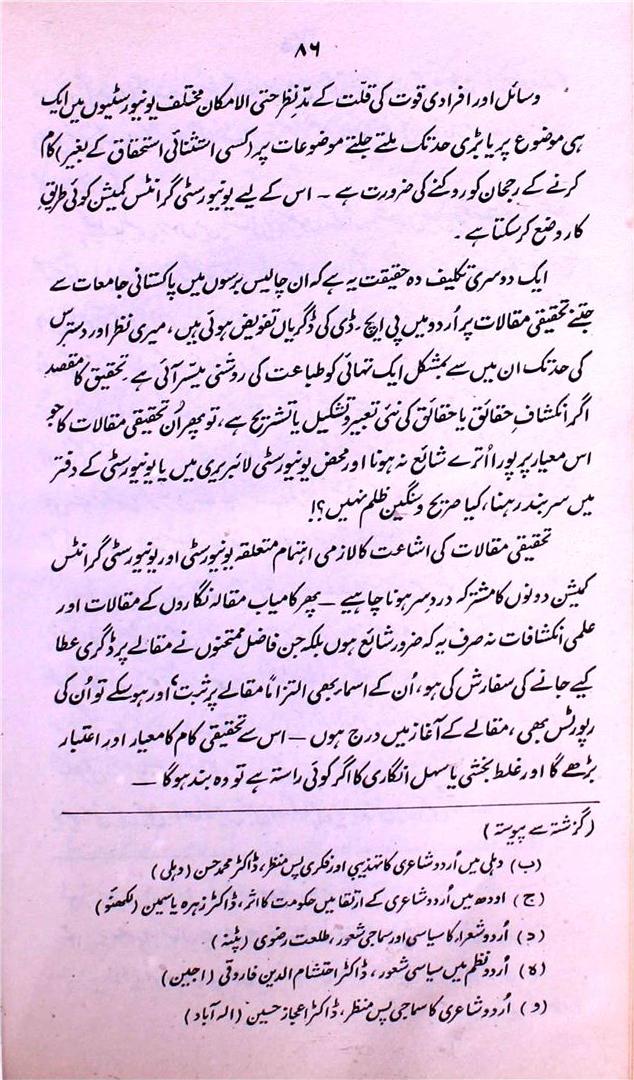 ۸۶
وسائل اور افرادی قوت کی قلّت کے مدِّ نظر حتی الامکان مختلف یونیورسٹیوں میں ایک
ہی موضوع پر یا بڑی حد تک ملتے جلتے موضوعات پر (کسی استثنائی استحقاق کے بغیر) کام
کرنے کے رجحان کو روکنے کی ضرورت ہے ۔ اس کے لیے یونیورسٹی گرانٹس کمیشن کوئی طریقِ
کار وضع کر سکتا ہے ۔
ایک دوسری تکلیف دہ حقیقت یہ ہے کہ ان چالیس برسوں میں پاکستانی جامعات سے
جتنے تحقیقی مقالات پر اُردو میں پی ایچ۔ڈی کی ڈگریاں تفویض ہوئی ہیں، میری نظر اور دسترس
کی حد تک ان میں سے بمشکل ایک تہائی کو طباعت کی روشنی میسّر آئی ہے ۔ تحقیق کا مقصد
اگر انکشافِ حقائق یا حقائق کی نئی تعبیر و تشکیل یا تشریح ہے، تو پھر اُن تحقیقی مقالات کا جو
اس معیار پر پورا اُترے شائع نہ ہونا اور محض یونیورسٹی لائبریری میں یا یونیورسٹی کے دفتر
میں سربند رہنا، کیا صریح و سنگین ظلم نہیں؟!
تحقیقی مقالات کی اشاعت کا لازمی اہتمام متعلقہ یونیورسٹی اور یونیورسٹی گرانٹس
کمیشن دونوں کا مشترکہ دردِ سر ہونا چاہیے ــ پھر کامیاب مقالہ نگاروں کے مقالات اور
علمی انکشافات نہ صرف یہ کہ ضرور شائع ہوں بلکہ جن فاضل ممتحنوں نے مقالے پر ڈگری عطا
کیے جانے کی سفارش کی ہو، اُن کے اسماء بھی التزاماً مقالے پر ثبت، اور ہو سکے تو اُن کی
رپورٹس بھی، مقالے کے آغاز میں درج ہوں ــ اس سے تحقیقی کام کا معیار اور اعتبار
بڑھے گا اور غلط بخشی یا سہل انگاری کا اگر کوئی راستہ ہے تو وہ بند ہو گا ــ
(گزشتہ سے پیوستہ)
(ب) دہلی میں اُردو شاعری کا تہذیبی اور فکری پس منظر، ڈاکٹر محمد حسن (دہلی)
(ج) اودھ میں اُردو شاعری کے ارتقا میں حکومت کا اثر، ڈاکٹر زہرہ یاسمین (لکھنؤ)
(د) اُردو شعراء کا سیاسی اور سماجی شعور، طلعت رضوی (پٹنہ)
(ہ) اُردو نظم میں سیاسی شعور، ڈاکٹر احتشام الدین فاروقی (اجین)
(و) اُردو شاعری کا سماجی پس منظر، ڈاکٹر اعجاز حسین (الہ آباد)